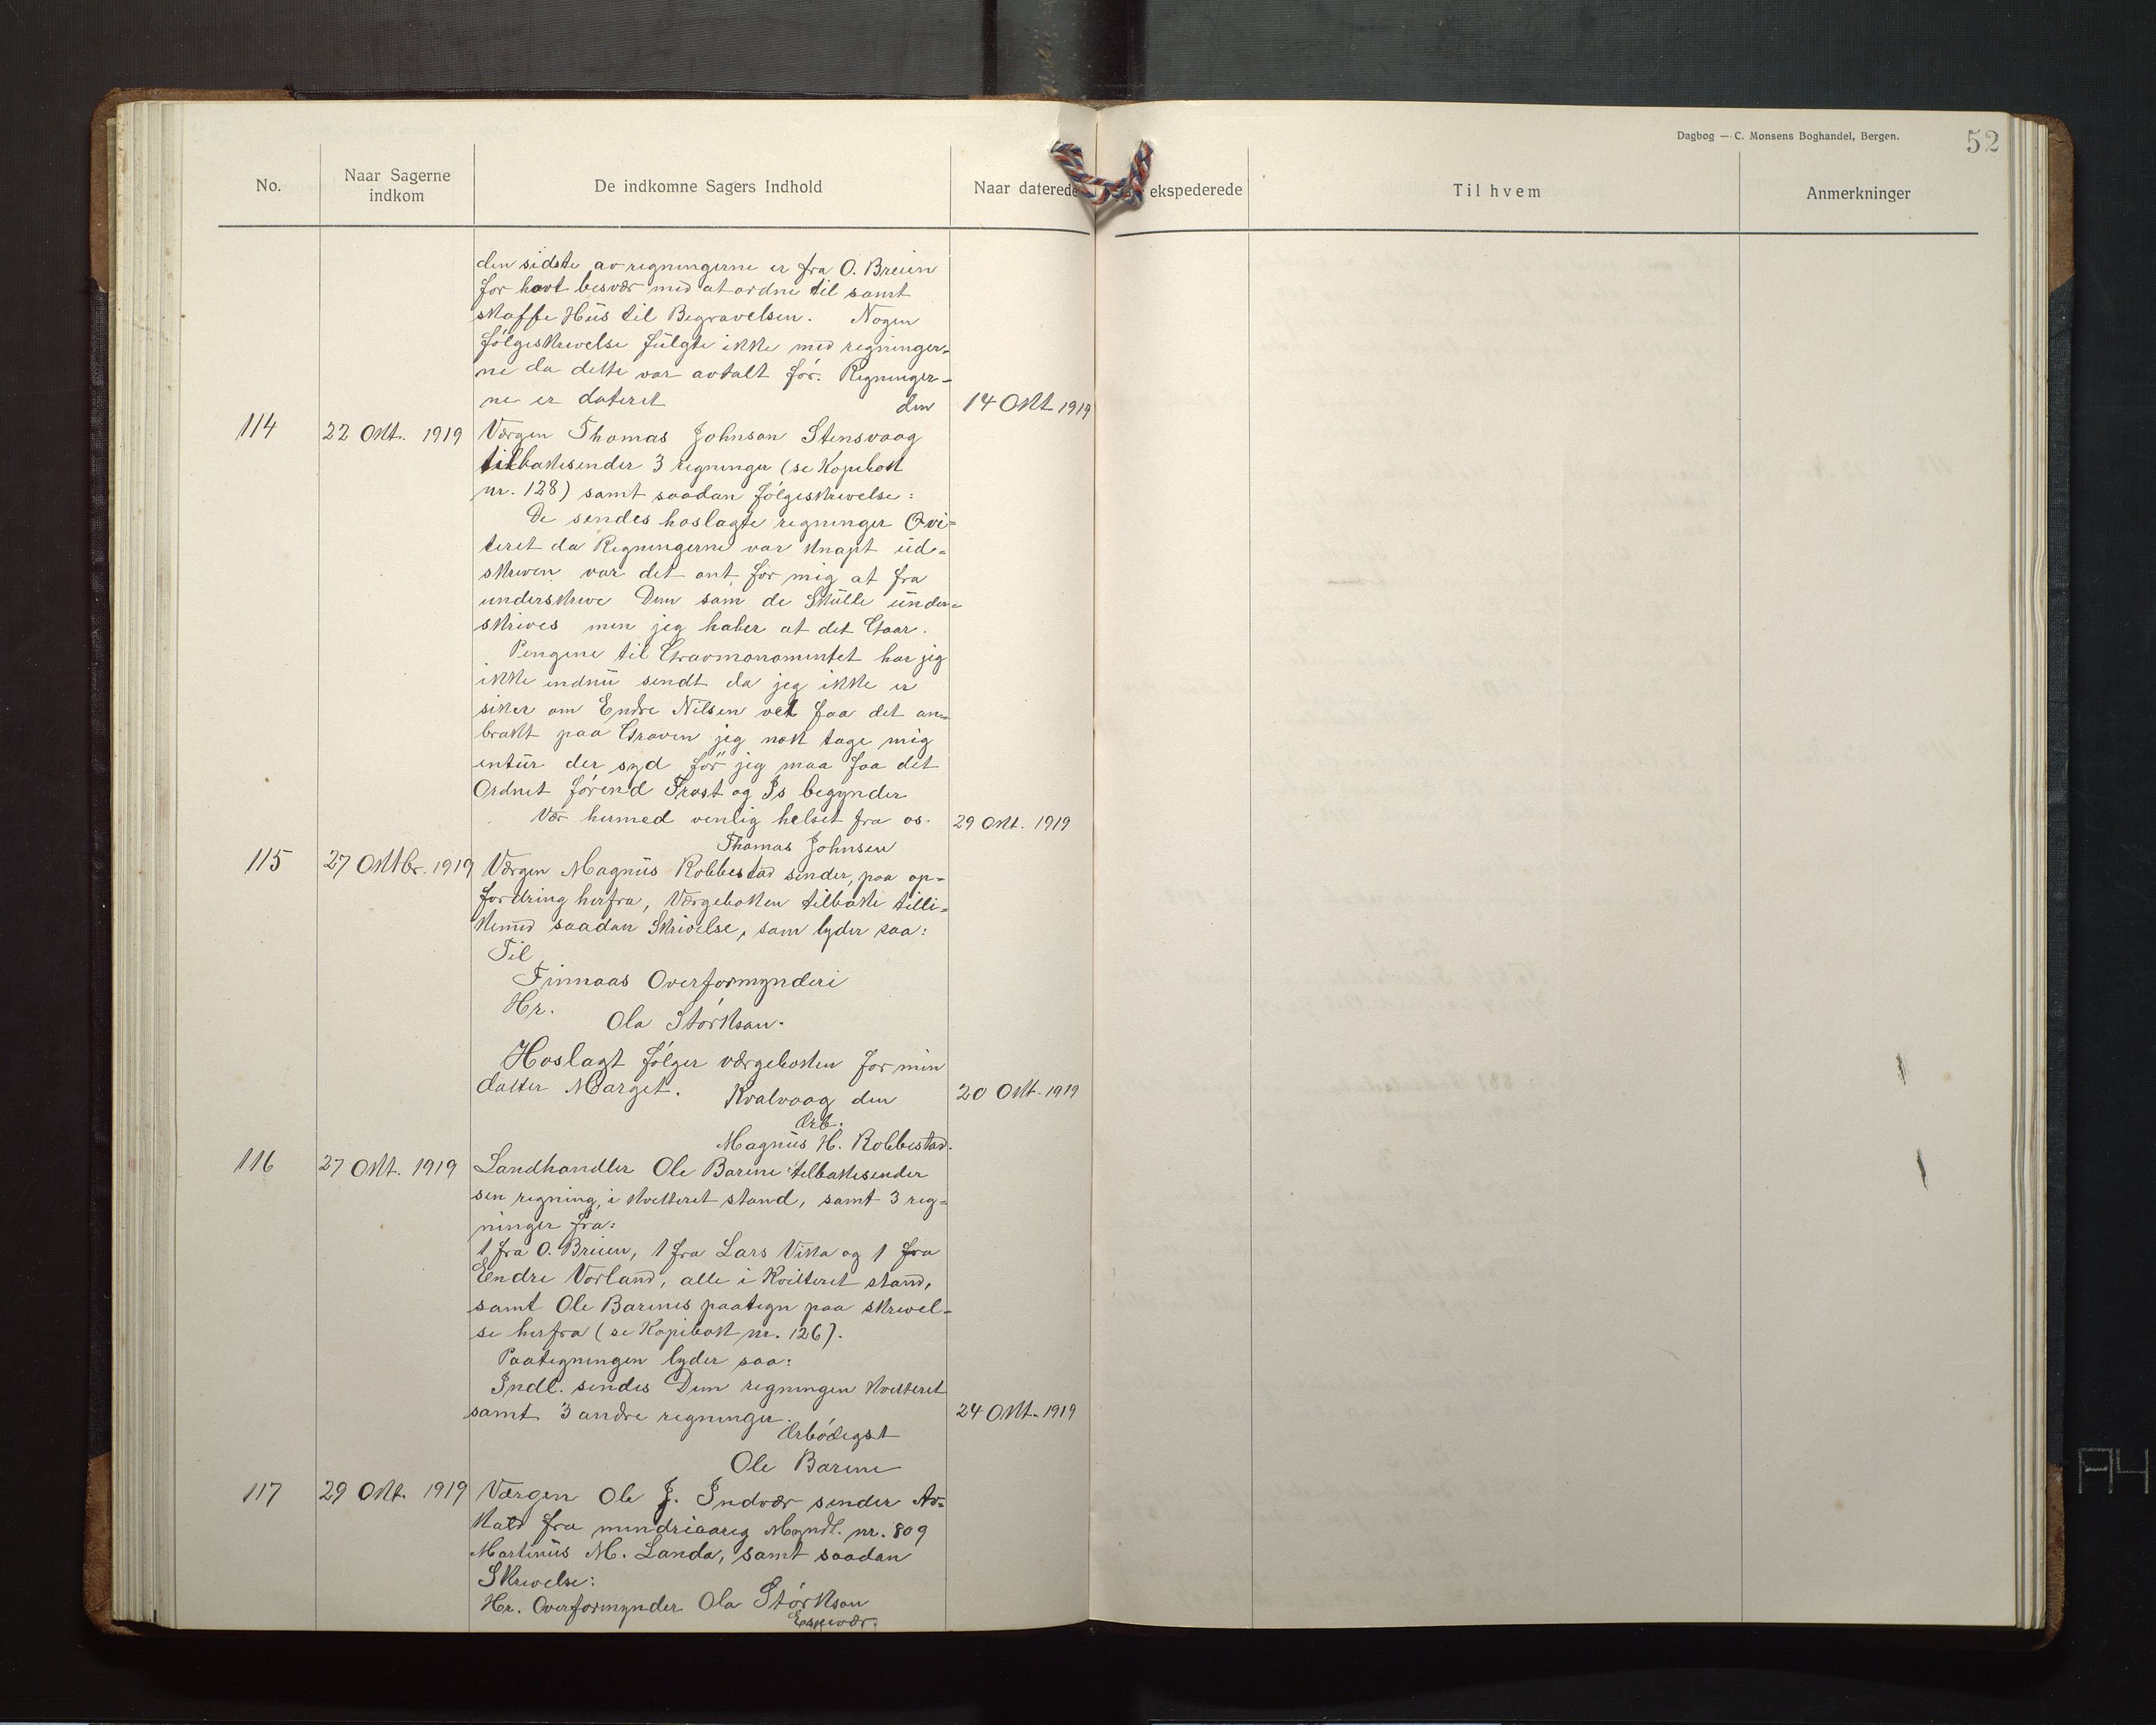 Dagbog — C. Monsens Boghandel, Bergen.
52
No.
Naar Sagerne indkom
De indkomne Sagers Indhold
Naar daterede
ekspederede
Til hvem
Anmerkninger
den sidste av regningerne er fra O. Breien
for havt besvær med at ordne til samt
skaffe Hus til Begravelsen. Nogen
følgeskrivelse fulgte ikke med regninger-
ne da dette var avtalt før. Regninger-
ne er dateret den 14 Okt 1919
114 22 Okt. 1919 Værgen Thomas Johnson Stensvaag
tilbakesender 3 regninger (se Kopibok
nr. 128) samt saadan følgeskrivelse:
De sendes hoslagte regninger Qvi=
teret da Regningerne var knapt ud=
skreven var det ont for mig at fra
underskrive Dem som de Skulle under=
skrives men jeg haber at det Gaar.
Pengene til Gravmonomentet har jeg
ikke endnu sendt da jeg ikke er
siker om Endre Nilsen vet faa det an=
brakt paa Graven jeg nok tage mig
entur der syd før jeg maa faa det
Ordnet førend Frost og Is begynder
Vær hermed venlig helset fra os. 29 Okt. 1919
Thomas Johnsen
115 27 Oktbr. 1919 Værgen Magnus Robbestad sender, paa op=
fordring herfra, Værgeboken tilbake tilli=
kemed saadan Skrivelse, som lyder saa:
Til
Finnaas Overformynderi
Hr.
Ola Størkson.
Hoslagt følger værgeboken for min
datter Marget. Kvalvaag den 20 Okt. 1919
Ærb.
Magnus H. Robbestad.
116 27 Okt. 1919 Landhandler Ole Barene tilbakesender
sen regning, i kvitteret stand, samt 3 reg=
ninger fra:
1 fra O. Breien, 1 fra Lars Vika og 1 fra
Endre Vorland, alle i Kvitteret stand,
samt Ole Barenes paategn paa skrivel=
se herfra (se Kopibok nr. 126).
Paategningen lyder saa:
Indl. sendes Dem regningen kvitteret
samt 3 andre regninger. 24 Okt. 1919
Ærbødigst
Ole Barene
117 29 Okt. 1919 Værgen Ole J. Indvær sender Av=
kald fra mindreaarig Myndl. nr. 809
Martinus M. Landa, samt saadan
Skrivelse:
Hr. Overformynder Ola Størkson
Espevær.